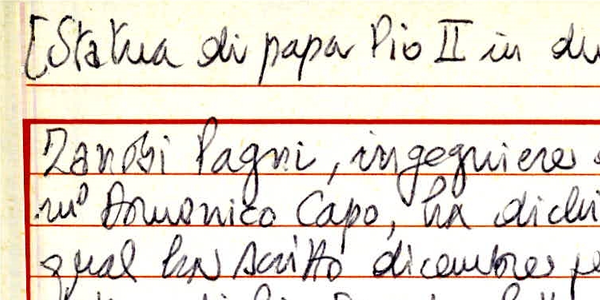 [Statua di papa Pio II in du
Zanobi Pagni, ingegniere
mo Domenico Capo, ha dichi
qual ha scritto dicembre pe